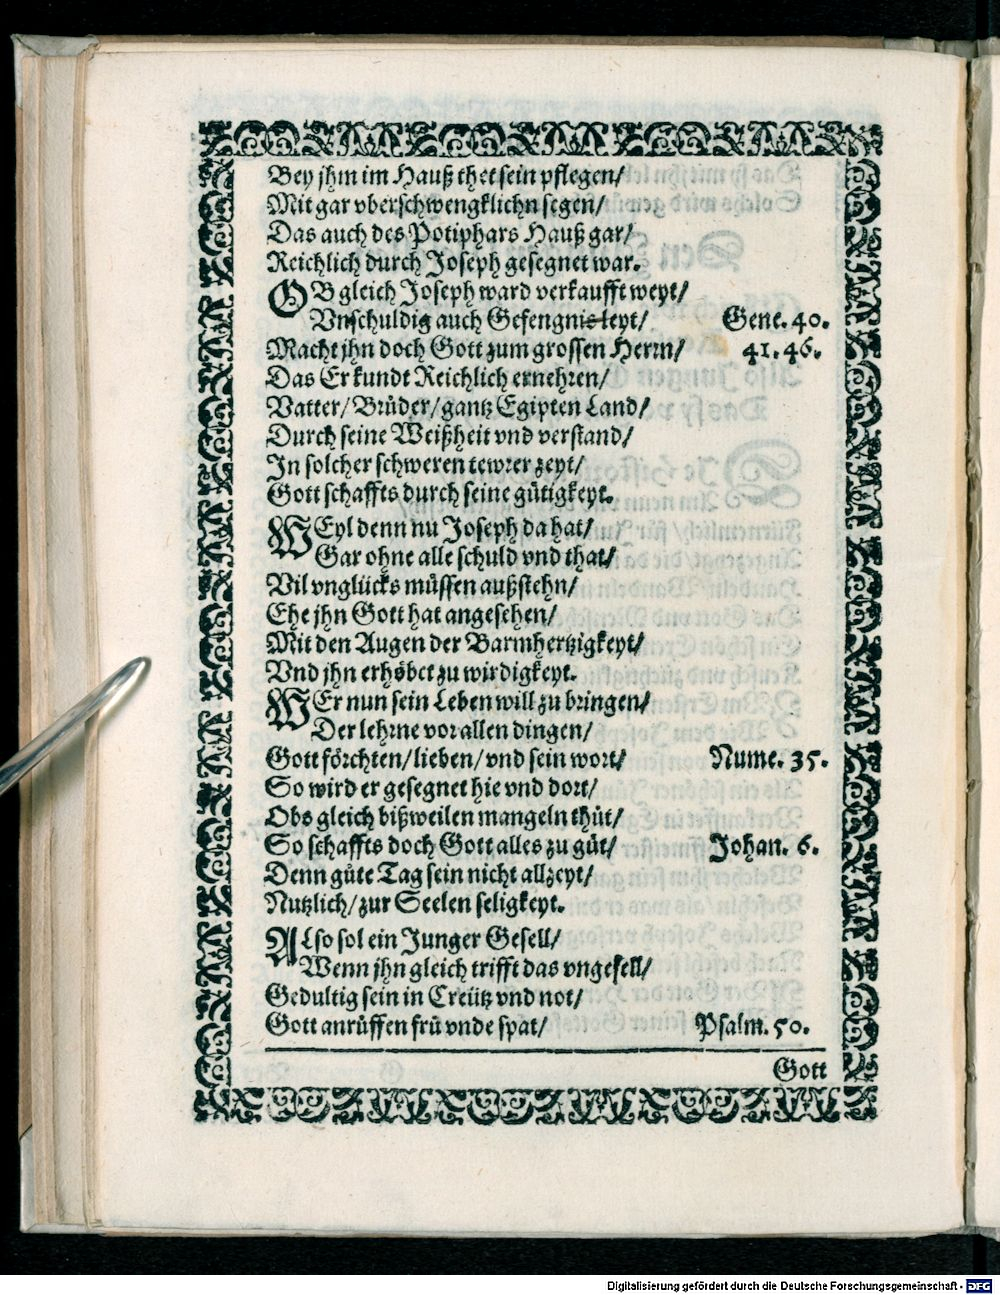 Bey jhm im Hauß thet sein pflegen/
Mit gar vberschwengklichn segen/
Das auch des Potiphars Hauß gar/
Reichlich durch Joseph gesegnet war.
OB gleich Joseph ward verkaufft weyt/
Vnschuldig auch Gefengnis leyt/ Gene. 40.
Macht jhn doch Gott zum grossen Herrn/ 41. 46.
Das Er kundt Reichlich ernehren/
Vatter/ Brüder/ gantz Egipten Land/
Durch seine Weißheit vnd verstand/
In solcher schweren tewrer zeyt/
Gott schaffts durch seine gütigkeyt.
WEyl denn nu Joseph da hat/
Gar ohne alle schuld vnd that/
Vil vnglücks müssen außstehn/
Ehe jhn Gott hat angesehen/
Mit den Augen der Barmhertzigkeyt/
Vnd jhn erhöbet zu wirdigkeyt.
WEr nun sein Leben will zu bringen/
Der lehrne vor allen dingen/
Gott förchten/ lieben/ vnd sein wort/ Nume. 35.
So wird er gesegnet hie vnd dort/
Obs gleich bißweilen mangeln thůt/
So schaffts doch Gott alles zu gůt/ Johan. 6.
Denn gůte Tag sein nicht allzeyt/
Nutzlich/ zur Seelen seligkeyt.
ALso sol ein Junger Gesell/
Wenn jhn gleich trifft das vngefell/
Gedultig sein in Creütz vnd not/
Gott anrüffen frü vnde spat/ Psalm. 50.
Gott
Digitalisierung gefördert durch die Deutsche Forschungsgemeinschaft - DFG